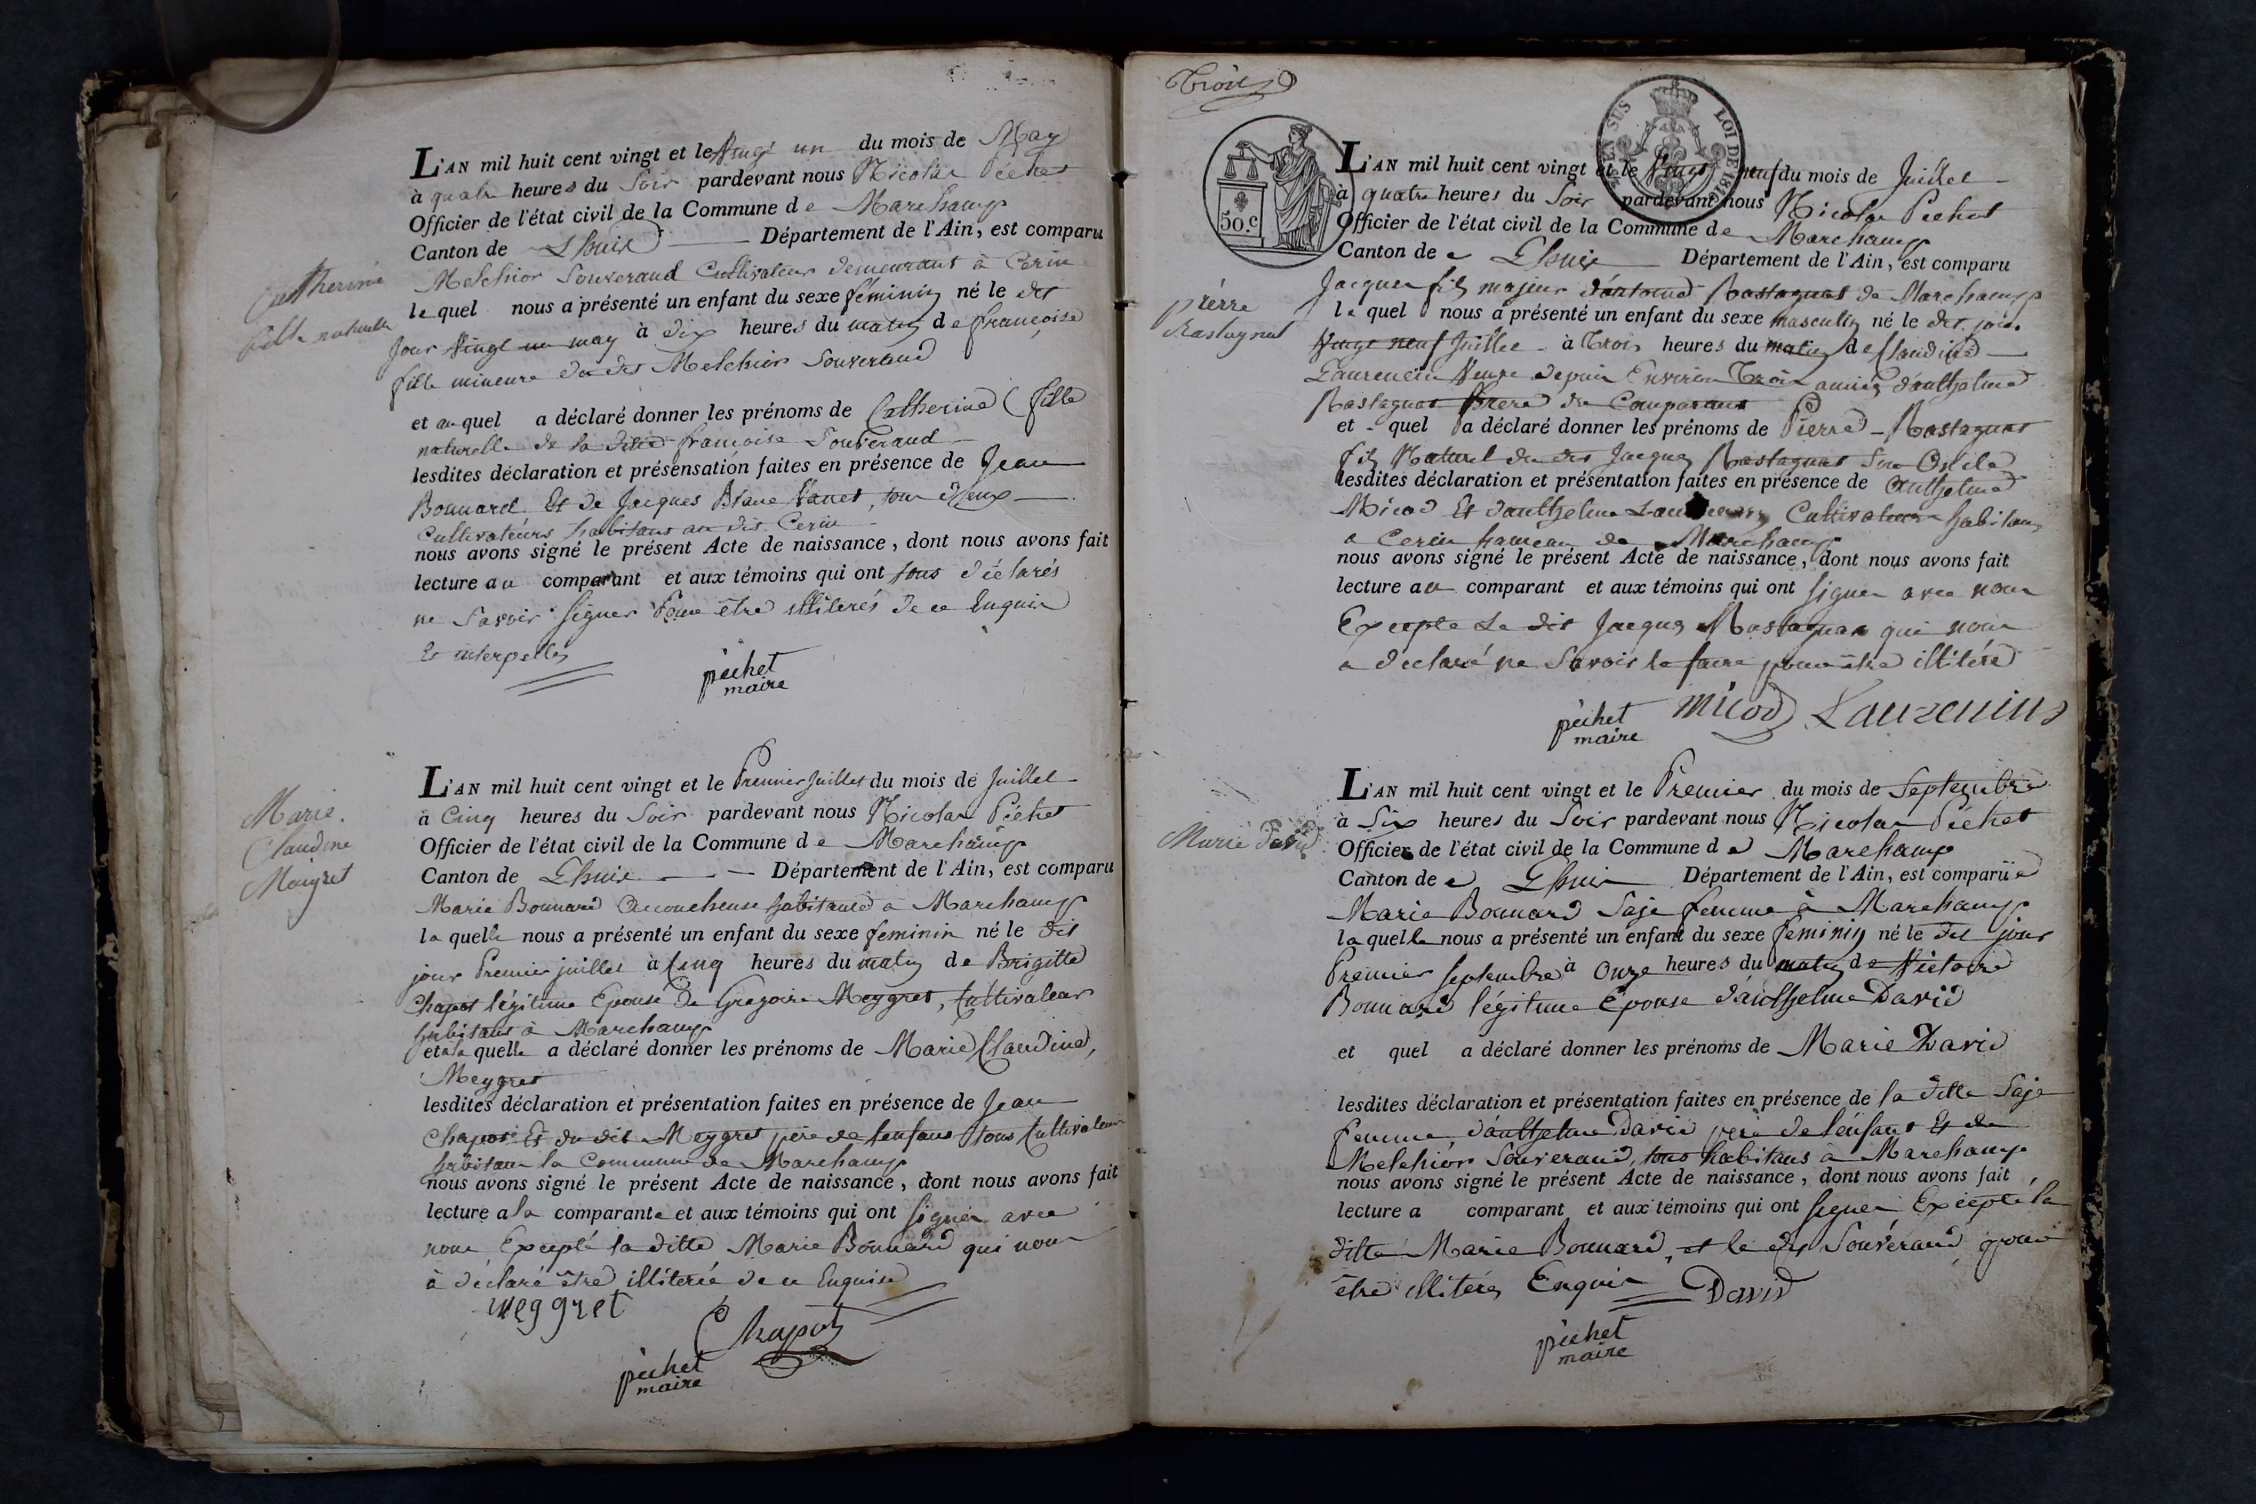 Catherine
fille naturelle
L'AN mil huit cent vingt et le Vingt un du mois de May
à quatre heures du Soir pardevant nous Nicolas Péchet
Officier de l'état civil de la Commune de Marchamp
Canton de Lhuis Département de l'Ain, est comparu
Melchior Souveraud Cultivateur demeurant à Cerin
lequel nous a présenté un enfant du sexe féminin né le dit
jour Vingt un may à dix heures du matin de françoise
fille mineure du dit Melchior Souveraud
et auquel a déclaré donner les prénoms de Catherine (fille
naturelle de la ditte françoise Souveraud
lesdites déclaration et présensation faites en présence de Jean
Bonnard Et de Jacques Blanc tous deux
Cultivatéurs habitans au dit Cerin
nous avons signé le présent Acte de naissance, dont nous avons fait
lecture au comparant et aux témoins qui ont tous déclarés
ne Savoir Signer Pour être illiterés de ce Enquis
Et interpellés
péchet
maire
Marie
Claudine
Maigret
L'AN mil huit cent vingt et le Premier Juillet du mois de Juillet
à Cinq heures du Soir pardevant nous Nicolas Péchet
Officier de l'état civil de la Commune de Marchamp
Canton de Lhuis Département de l'Ain, est comparu
Marie Bonnard Accoucheuse habitante à Marchamp
laquelle nous a présenté un enfant du sexe feminin né le dit
jour Premier juillet à Cinq heures du matin de Brigitte
Chapot légitime Epouse de Gregoire Meygret, Cultivateur
habitant à Marchamp
et a la quelle a déclaré donner les prénoms de Marie Claudine,
Meygret
lesdites déclaration et présentation faites en présence de Jean
Chapot Et du dit Meygret père de lenfant tous Cultivateurs
habitans la Commune de Marchamp
nous avons signé le présent Acte de naissance, dont nous avons fait
lecture a la comparante et aux témoins qui ont signér avec
nous Excepté la ditte Marie Bonnard qui nous
à déclaré être illiterée de ce Enquise
meggret
Chapot
péchet
maire
Trois
50.c
EN SUS
LOI DE 1816
pierre
Rastagnat
L'AN mil huit cent vingt et le Vingt neuf du mois de Juillet
à quatre heures du Soir pardevant nous Nicolas Pechet
Officier de l'état civil de la Commune de Marchamp
Canton de Lhuis Département de l'Ain, est comparu
Jacques fils majeur d'antoine Rastagnat de Marchamp
lequel nous a présenté un enfant du sexe masculin né le dit jour
Vingt neuf Juillet à Trois heures du matin de Claudine
Laurencin Veuve depuis Environ Trois années d'anthelme
Rastagnat frere du Comparant
et quel a déclaré donner les prénoms de Pierre Rastagnat
fils Naturel du dit Jacques Rastagnat Son Oncle
lesdites déclaration et présentation faites en présence de Anthelme
Micod Et d'anthelme Cultivateurs habitans
a Cerin hameau de Marchamp
nous avons signé le présent Acte de naissance, dont nous avons fait
lecture au comparant et aux témoins qui ont signer avec nous
Excepte Le dit Jacques Rastagnat qui nous
a déclaré ne Savoir le faire pour être illitéré
péchet
maire
micod
Lauzenins
Marie David
L'AN mil huit cent vingt et le Premier du mois de Septembre
à Six heures du Soir pardevant nous Nicolas Péchet
Officier de l'état civil de la Commune de Marchamp
Canton de Lhuis Département de l'Ain, est comparüe
Marie Bonnard Saje femme à Marchamp
laquelle nous a présenté un enfant du sexe feminin né le dit jour
Premier Septembre à Onze heures du matin de Victoire
Bonnard légitime Epouse d'anthelme David
et quel a déclaré donner les prénoms de Marie David
lesdites déclaration et présentation faites en présence de la ditte Saje
femme, d'anthelme David père de l'enfant Et de
Melchior Souveraud, tous habitans à Marchamp
nous avons signé le présent Acte de naissance, dont nous avons fait
lecture a comparant et aux témoins qui ont signer Excepté la
ditte Marie Bonnard, et le dit Souveraud pour
être illiterés Enquis
David
péchet
maire